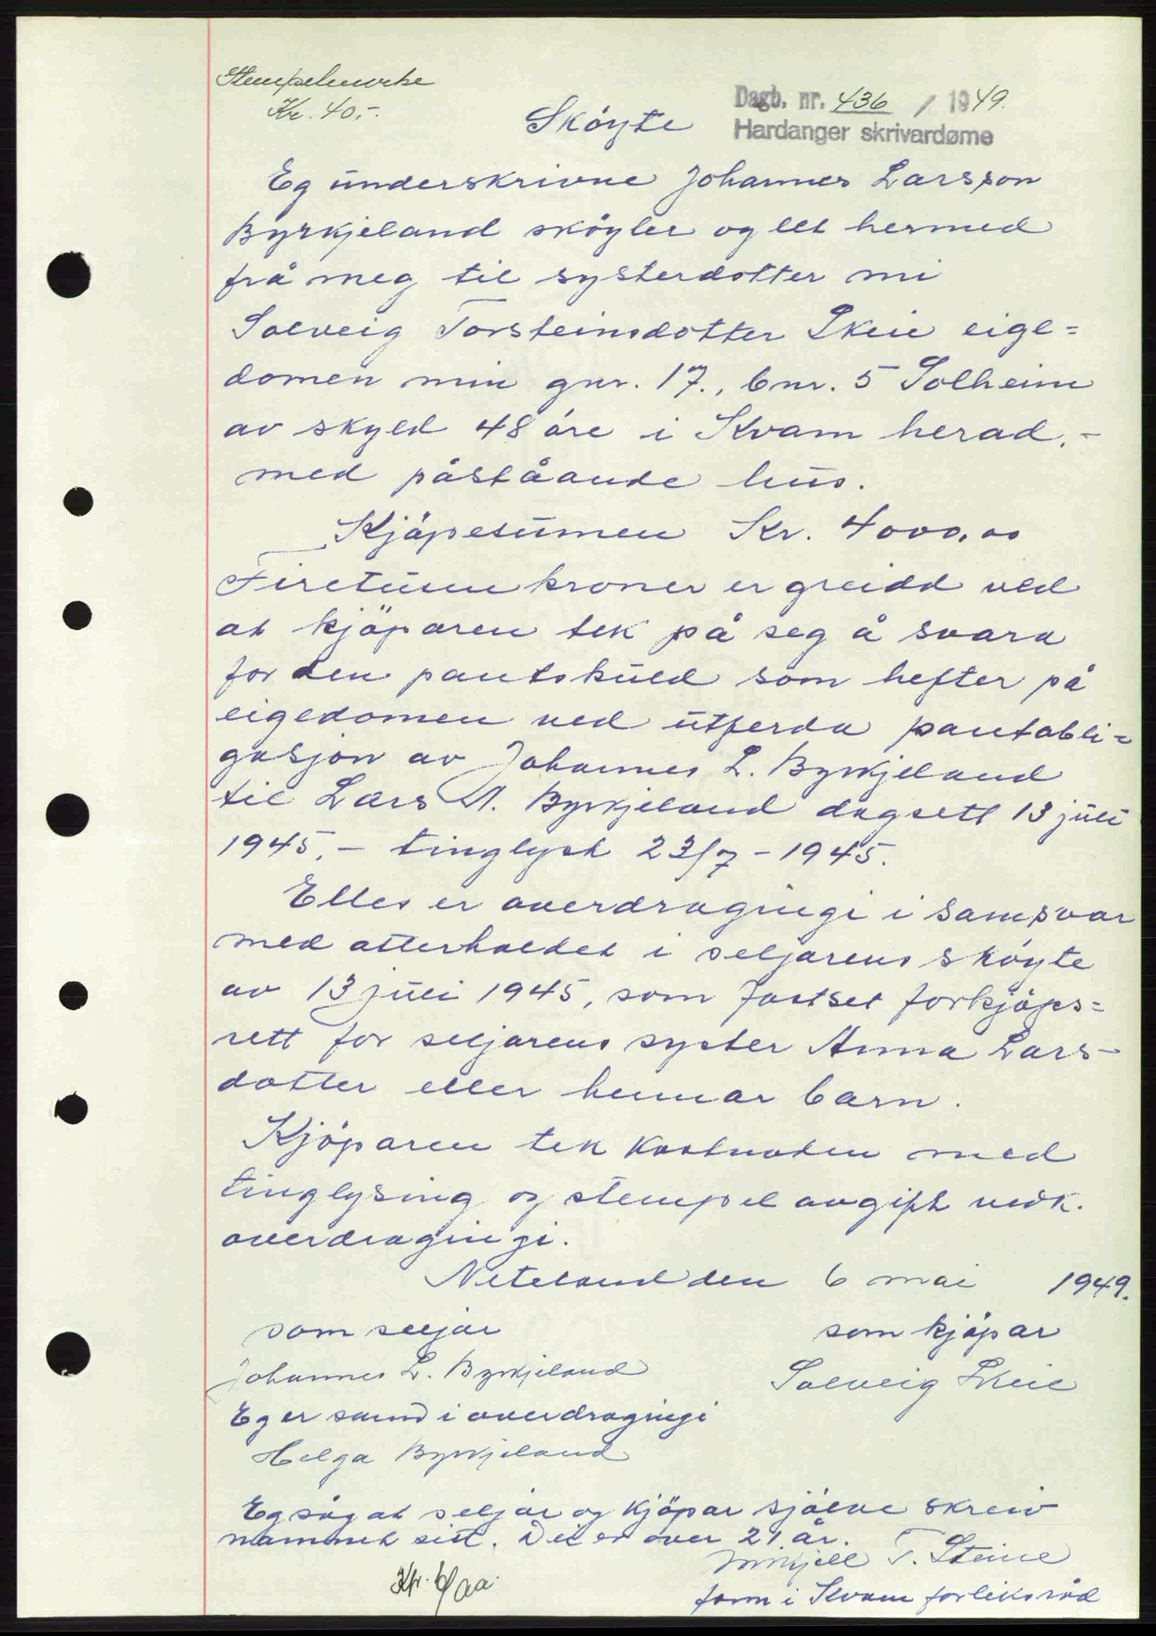 Stempelmerke
Kr. 40.-
Dagb. nr. 436 / 1949.
Hardanger skrivardøme
Sköyte
Eg underskrivne Johannes Larsson
Byrkjeland sköyter og let hermed
frå meg til systerdotter mi
Solveig Torsteinsdotter Skeie eige=
domen min gnr. 17., bnr. 5 Solheim
av skyld 48 öre i Kvam herad.-
med påståande hus.
Kjöpesumen Kr. 4000,00
Firetusen kroner er greidd ved
at kjöparen tek på seg å svara
for den pantskuld som hefter på
eigedomen ved utferda pantobli=
gasjon av Johannes L. Byrkjeland
til Lars A. Byrkjeland dagsett 13 juli
1945.- tinglyst 23/7 - 1945.
Elles er overdragingi i samsvar
med atterhaldet i seljarens sköyte
av 13 juli 1945, som fastset forkjöps=
rett for seljarens syster Anna Lars-
dotter eller hennar barn.
Kjöparen tek kostnaden med
tinglysing og stempelavgift vedk.
overdragingi.
Neteland den 6 mai 1949.
som seljar som kjöpar
Johannes L. Byrkjeland Solveig Skeie
Eg er samd i overdragingi
Helga Byrkjeland
Eg såg at seljar og kjöpar sjölve skreiv
namnet sitt. Dei er over 21 år.
T. Steine
form i Kvam forliksråd
Kr. 6/00.